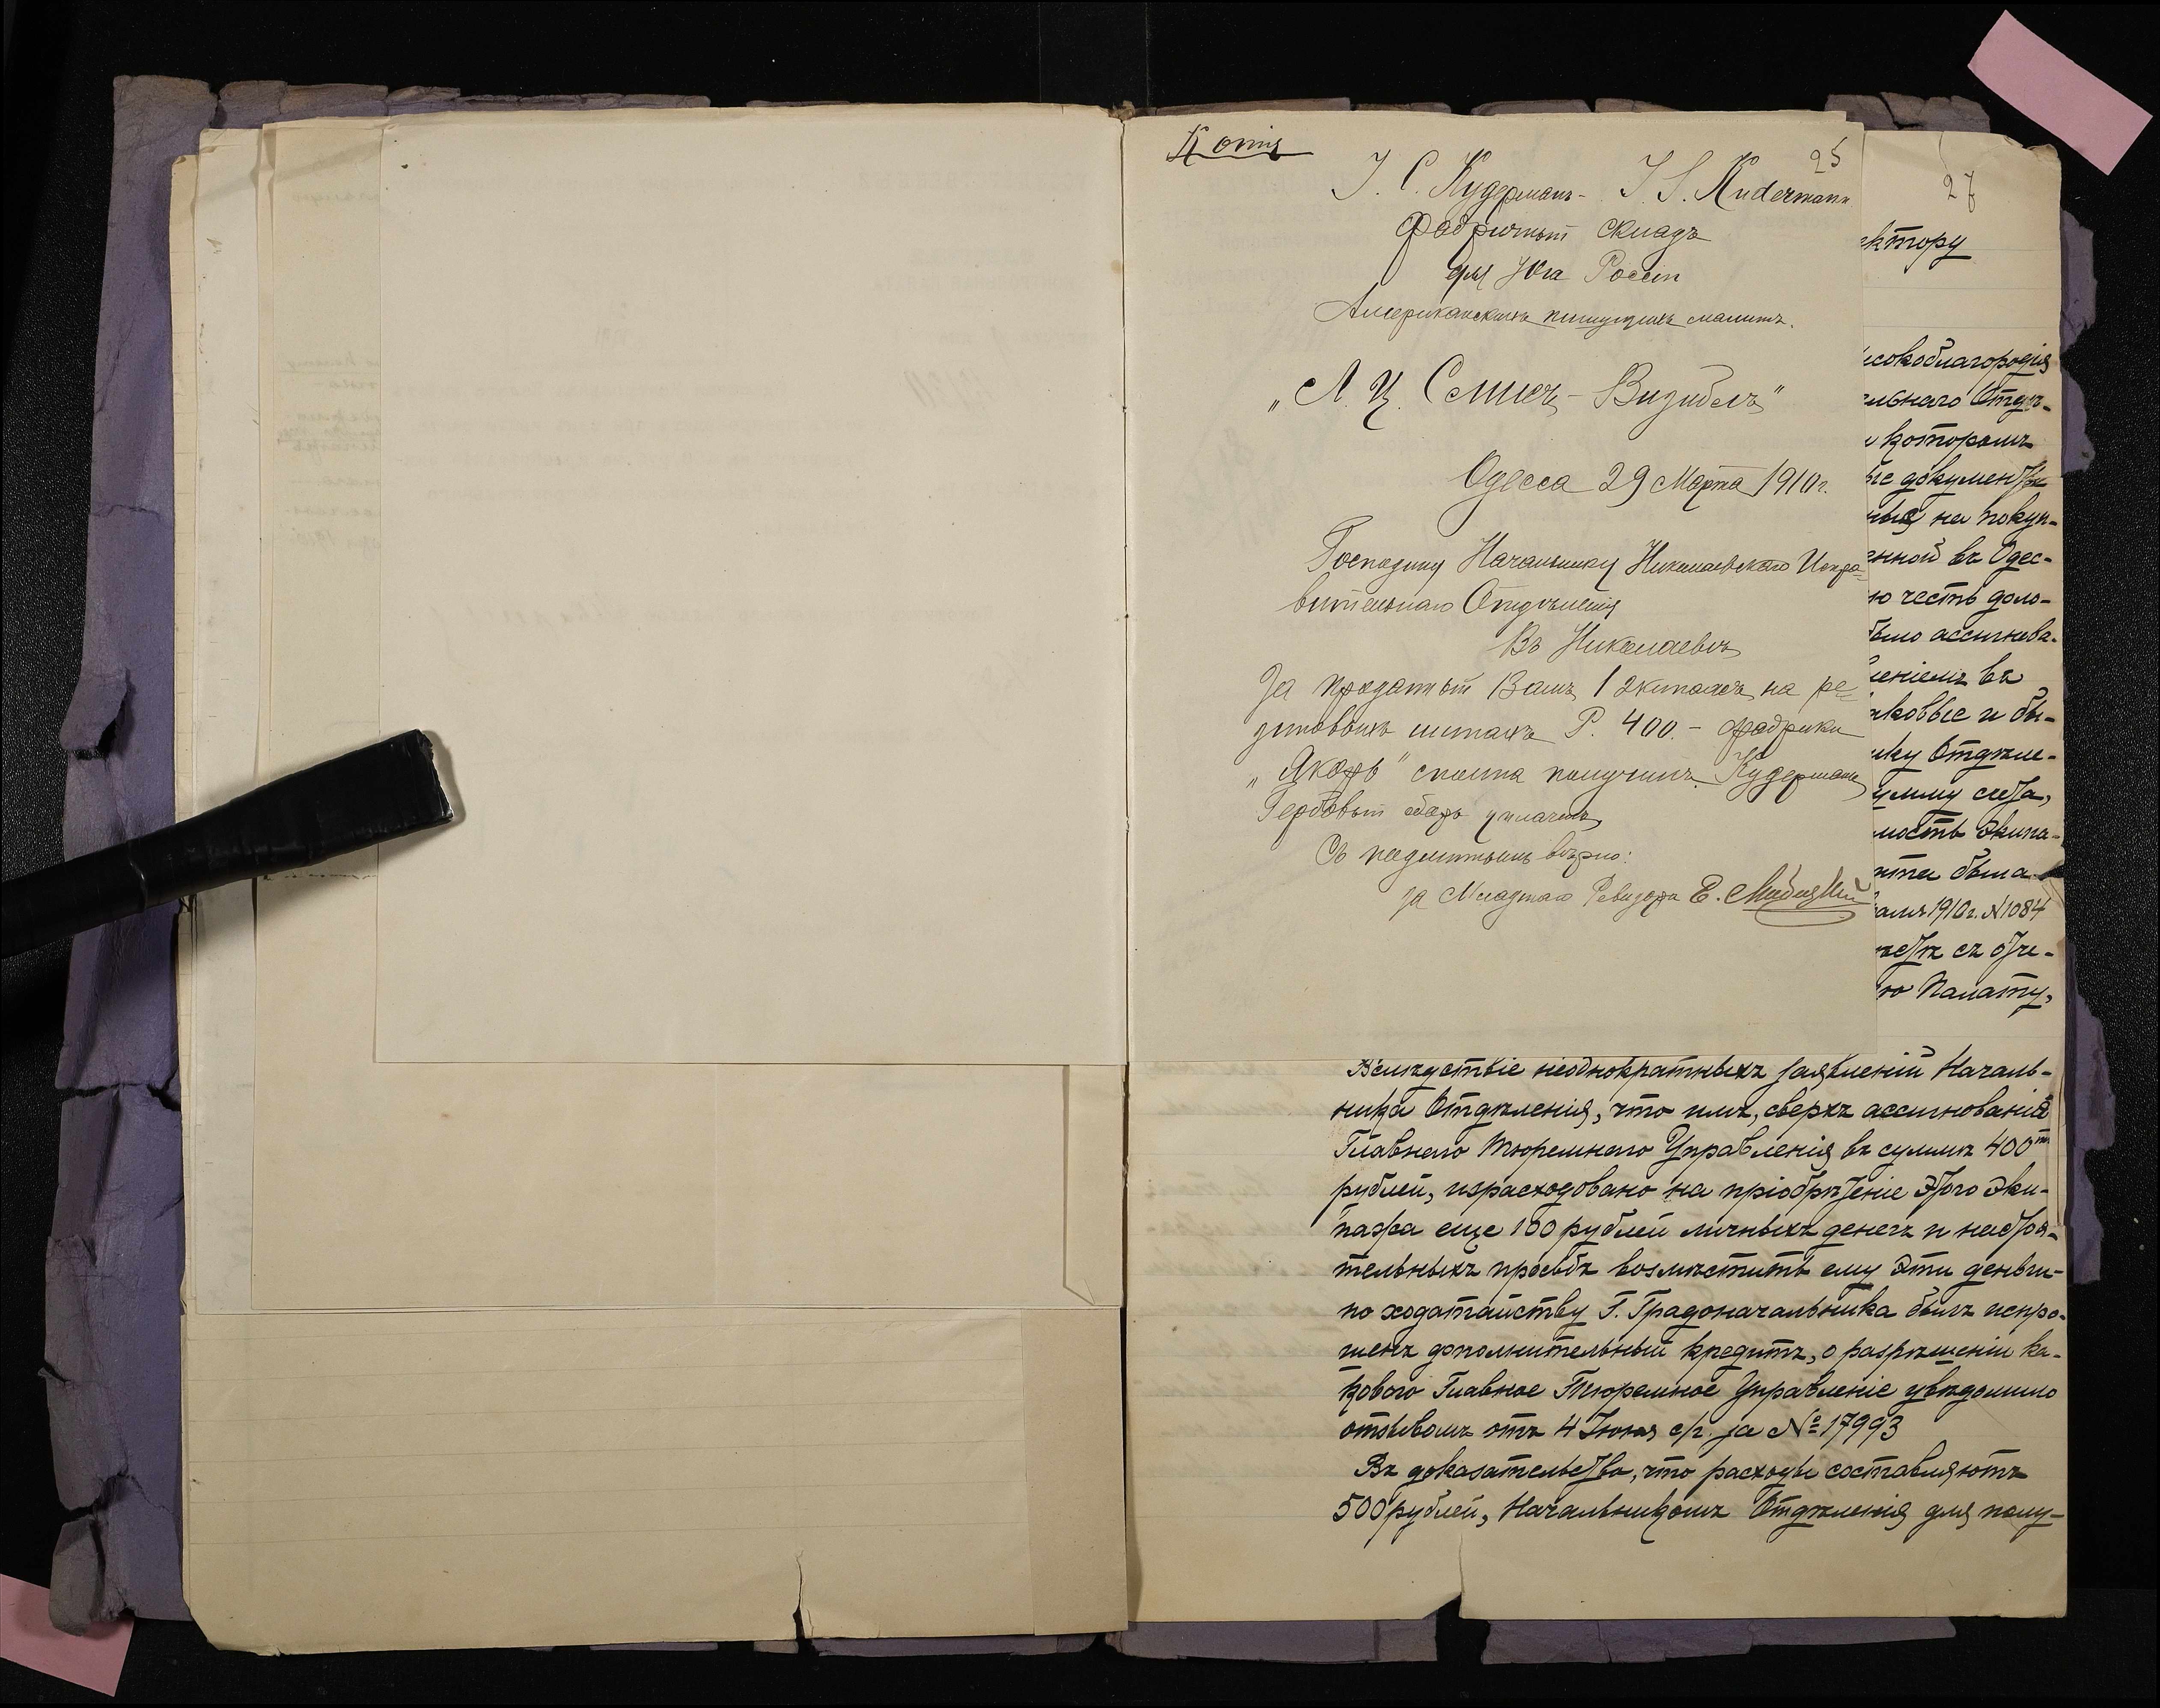 Копія
25
І. С. Кудерманъ - I. S. Kudermann
Фабричный складъ
для Юга Россіи
Американскихъ пишущихъ машинъ.
„Л. Ц. Смитъ - Визибель"
Одесса 29 Марта 1910 г.
Господину Начальнику Николаевского Испра-
вительнаго Отдѣленія
Въ Николаевѣ
За проданный Вамъ 1 экипажъ на ре-
зиновыхъ шинахъ Р. 400. - фабрики
„Якорь" сполна получилъ Кудерманъ
Гербовый сборъ уплаченъ
Съ подлиннымъ вѣрно:
за Младшаго Ревизора Е.
27
ктору
ысокоблагородія
ельнаго Отдѣ-
и которомъ
ые документы
ныя на покуп-
енной въ Одес-
ю честь доло-
было ассигнова-
леніемъ въ
аковые и бы-
ику Отдѣле-
умму счета,
мость экипа-
нта была
1910 г. № 1084
съ отче-
ю Палату,
Вслѣдствіе неоднократныхъ заявленій Началь-
ника Отдѣленія, что имъ, сверхъ ассигнованія
Главнаго Тюремнаго Управленія въ суммѣ 400т
рублей, израсходовано на пріобрѣтеніе этого эки-
пажа еще 100 рублей личныхъ денегъ и настоя-
тельныхъ просьбъ возмѣстить ему эти деньги-
по ходатайству Г. Градоначальника былъ испро-
шенъ дополнительный кредитъ, о разрѣшеніи ка-
кового Главное Тюремное Управленіе увѣдомило
отзывомъ отъ 4 Іюня с/г. за № 17993
Въ доказательство, что расходы составляютъ
500 рублей, Начальникомъ Отдѣленія для полу-